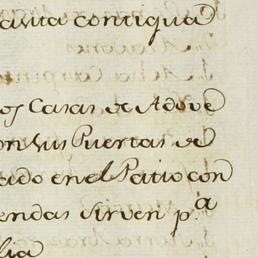 avita contiguá
os Casas, de Adove
on sus Puertas de
ado en el Patio con
endas sirven p.ª
lia